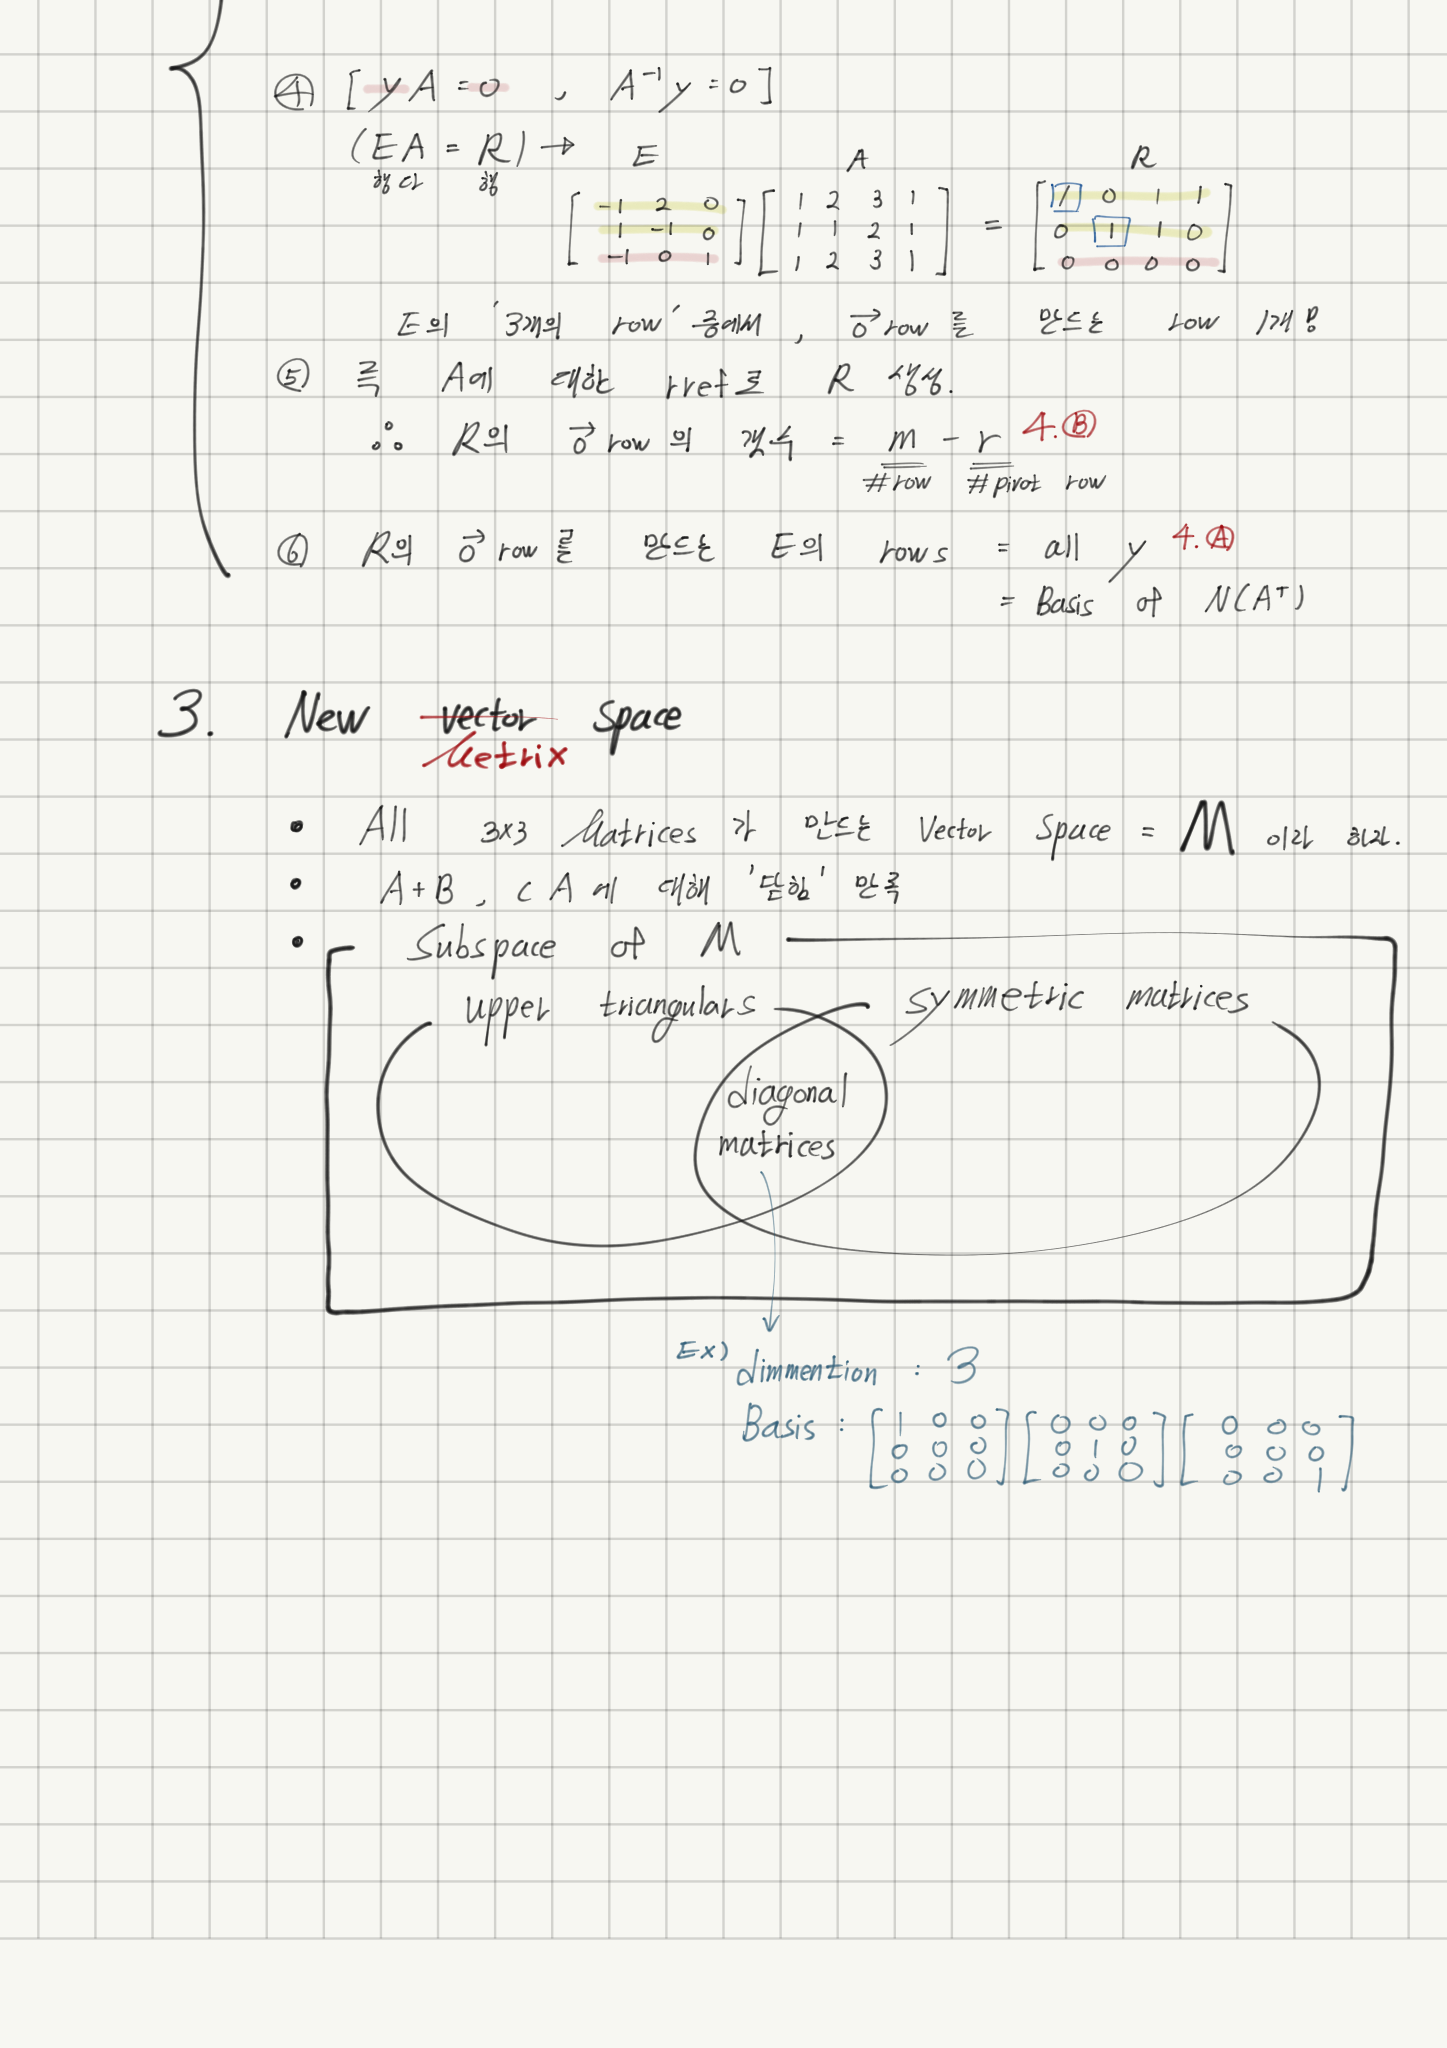 ④ [ yA = 0 , A⁻¹y = 0 ]
(EA = R) → E A R
행 다 행
[ -1 2 0 ] [ 1 2 3 1 ] = [ 1 0 1 1 ]
[ 1 -1 0 ] [ 1 1 2 1 ] [ 0 1 1 0 ]
[ -1 0 1 ] [ 1 2 3 1 ] [ 0 0 0 0 ]
E의 '3개의 row' 중에서, 0→ row를 만드는 row 1개!
⑤ 즉 A에 대한 rref로 R 생성.
∴ R의 0→ row의 갯수 = m - r 4.Ⓑ
#row #pivot row
⑥ R의 0→ row를 만드는 E의 rows = all y 4.Ⓐ
= Basis of N(Aᵀ)
3. New vector Space
Metrix
• All 3x3 Matrices 가 만드는 Vector Space = M 이라 하자.
• A+B, cA에 대해 '닫힘' 만족
• Subspace of M
upper triangulars symmetric matrices
diagonal
matrices
Ex) dimmention : 3
Basis : [ 1 0 0 ] [ 0 0 0 ] [ 0 0 0 ]
[ 0 0 0 ] [ 0 1 0 ] [ 0 0 0 ]
[ 0 0 0 ] [ 0 0 0 ] [ 0 0 1 ]